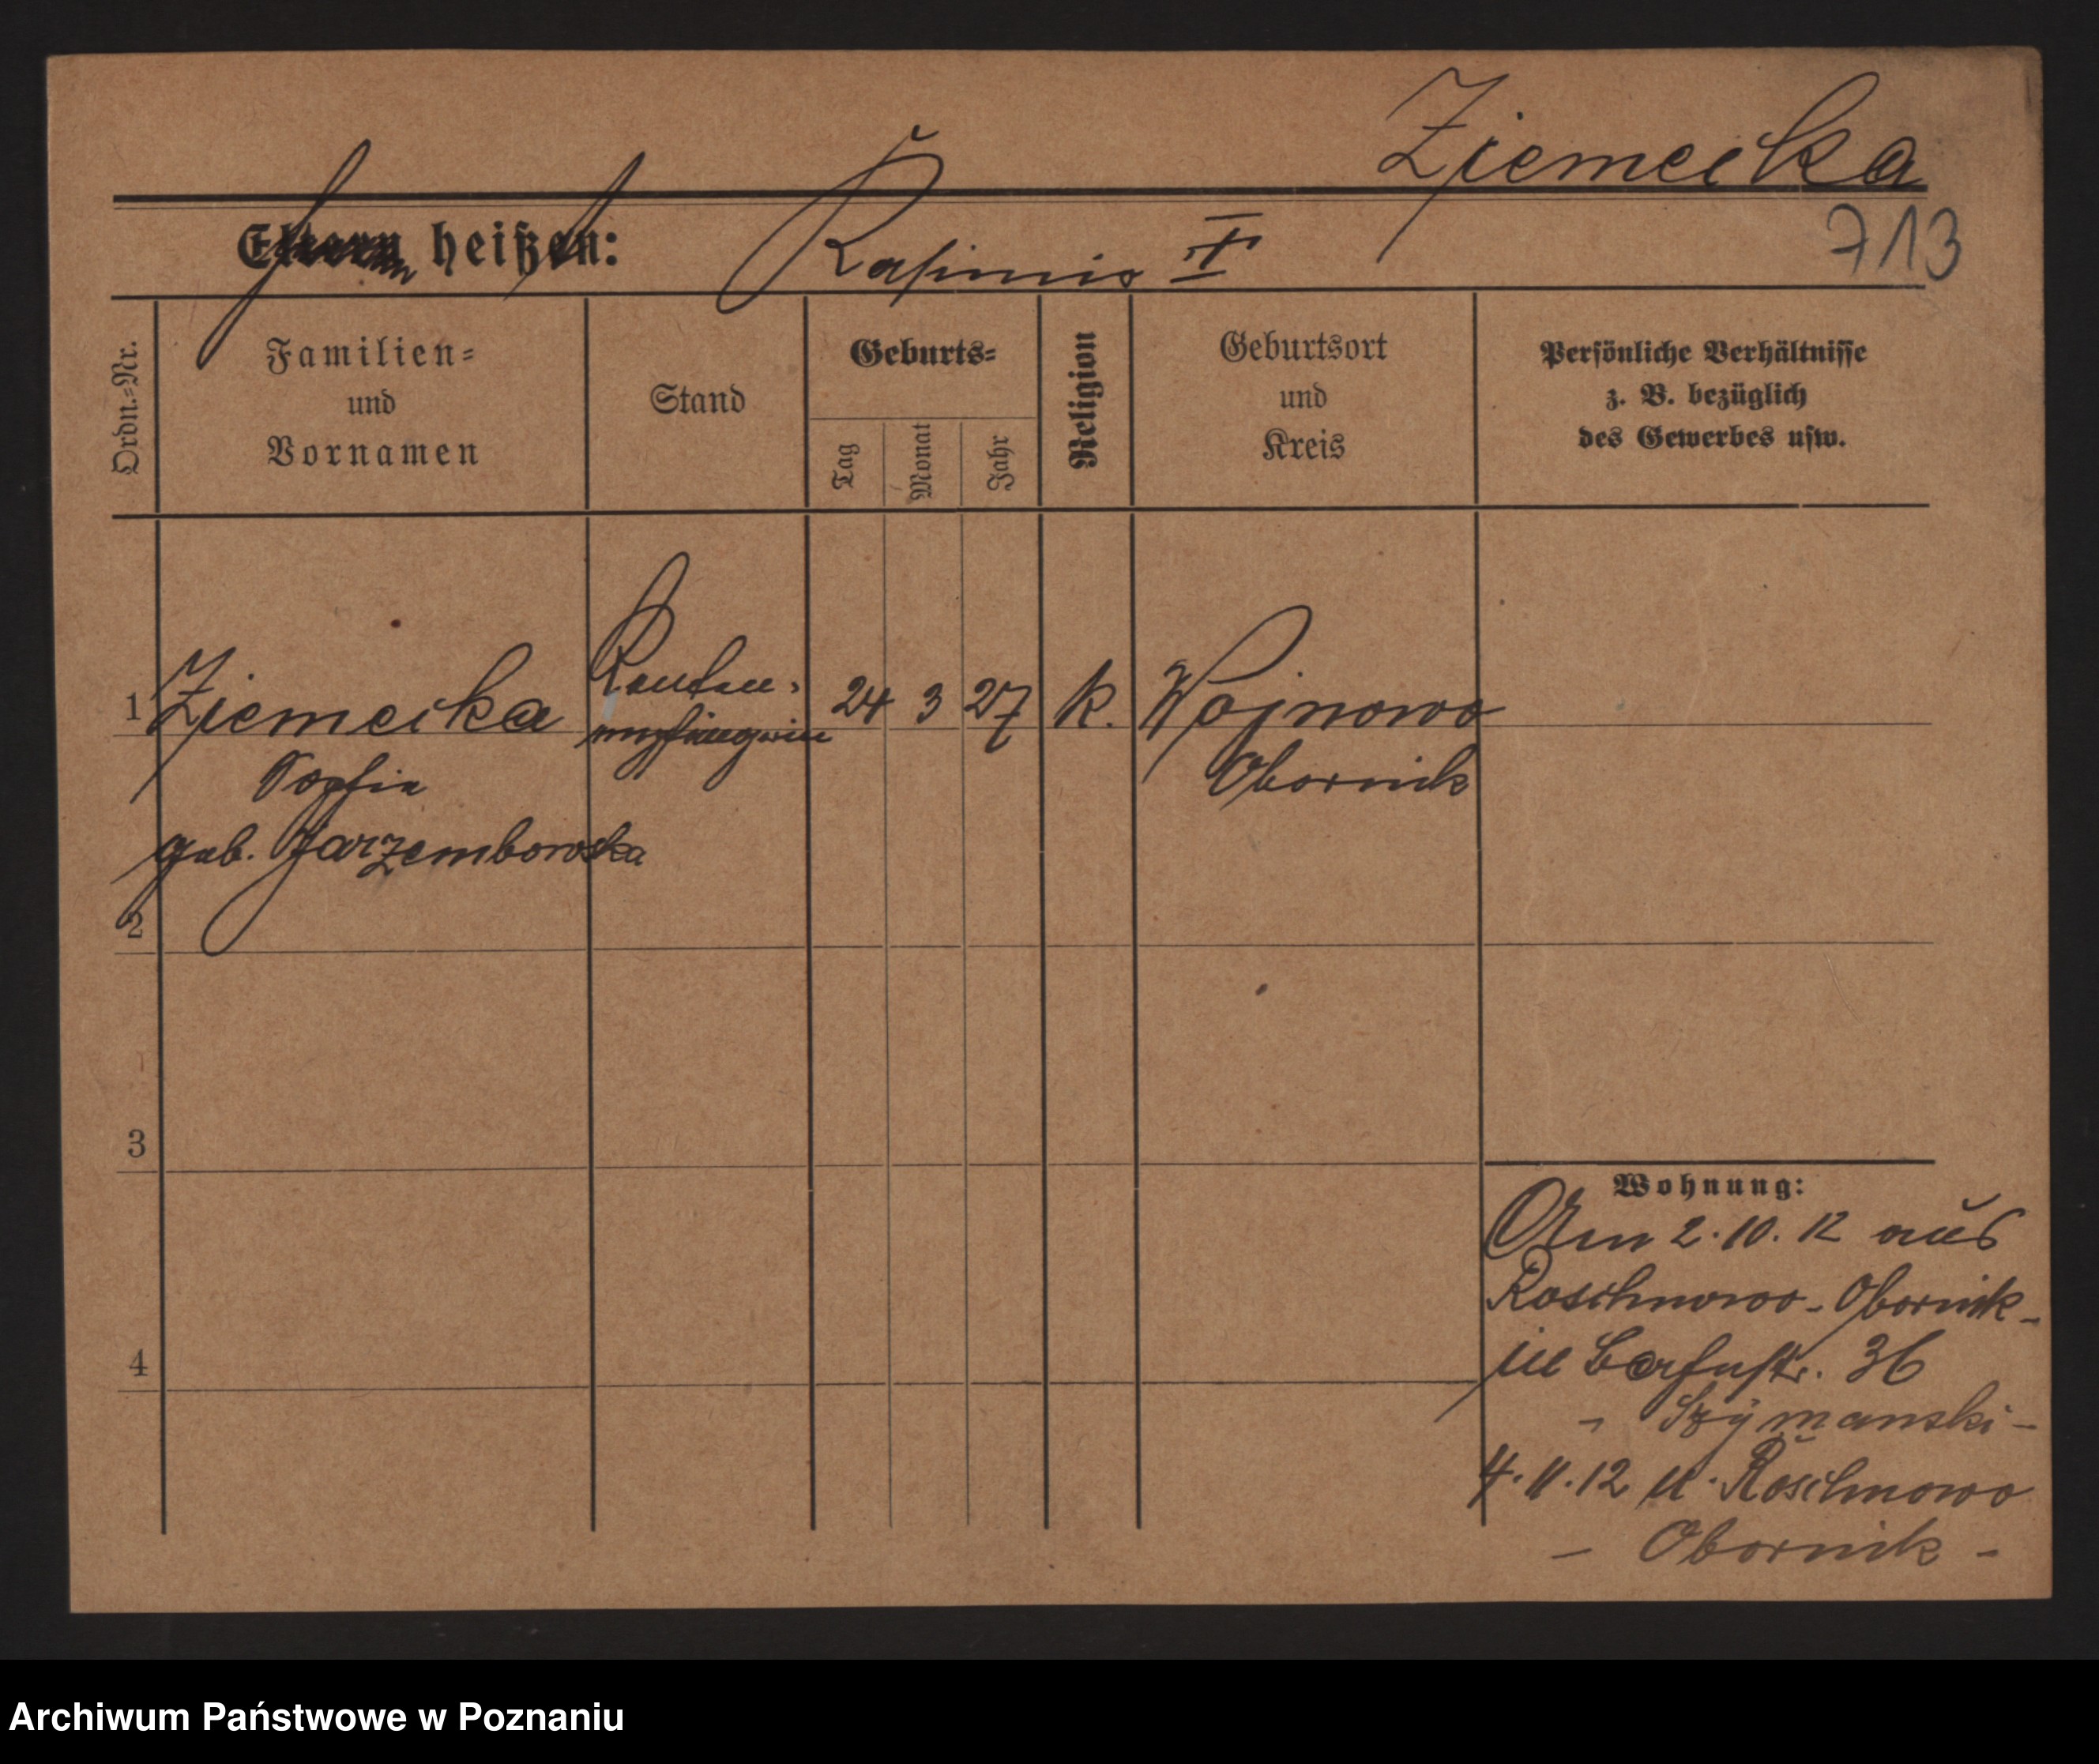 Ziemecka
713
Eltern heißen: Kasimir I
Ordn.-Nr.
Familien-
und
Vornamen
Stand
Geburts-
Tag
Monat
Jahr
Religion
Geburtsort
und
Kreis
Persönliche Verhältnisse
z. B. bezüglich
des Gewerbes usw.
1 Ziemecka Renten- 24 3 27 k. Wojnowo
empfängerin
Sophie Obornik
geb. Jarzembowska
2
3
4
Wohnung:
Am 2.10.12 aus
Roschnowo - Obornik -
36
- Szymanski -
4.11.12 n. Roschnowo
- Obornik -
Archiwum Państwowe w Poznaniu